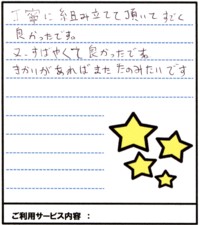 丁寧に組み立てて頂いてすごく
良かったです。
又、すばやくて良かったです。
きかいがあればまたたのみたいです
ご利用サービス内容：